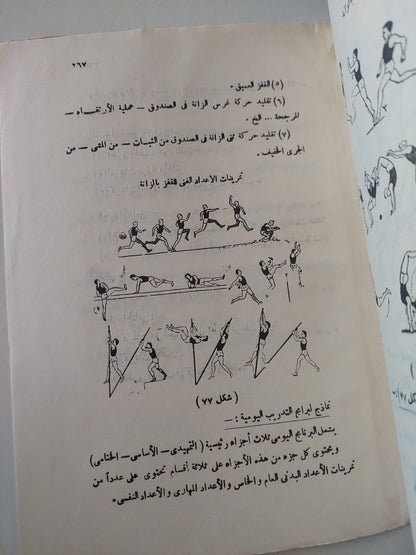 ٢٦٧
(٥) القفز العميق .
(٦) تقليد حركة غرس الزانة فى الصندوق — عملية الأرتقاء —
المرجحة ... الخ .
(٧) تقليد حركة ثنى الزانة فى الصندوق من الثبات — من المشى — من
الجرى الخفيف .
تمرينات الاعداد الفنى للقفز بالزانة
( شكل ٧٧ )
نماذج لبرامج التدريب اليومية : —
يشمل البرنامج اليومى ثلاث أجزاء رئيسية ( التمهيدى — الأساسى — الختامى )
ويحتوى كل جزء من هذه الأجزاء على ثلاثة أقسام تحتوى على عدداً من
تمرينات الأعداد البدنى العام والخاص والأعداد المهارى والأعداد النفسى .